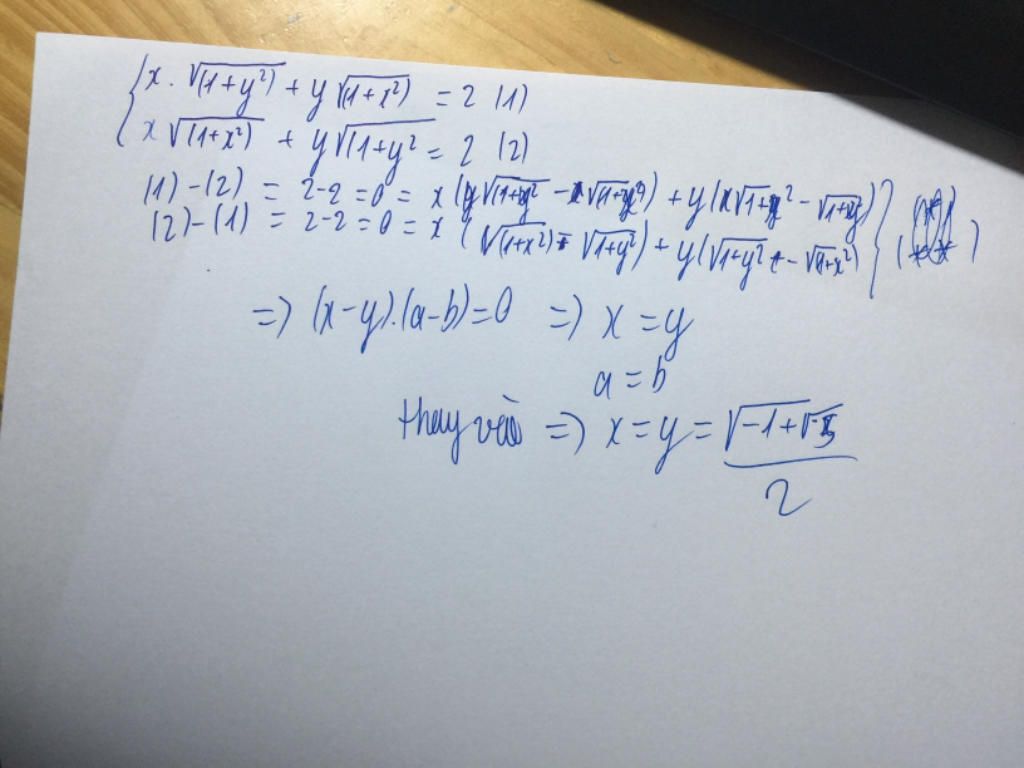 x . √(1+y²) + y √(1+x²) = 2 (1)
x √(1+x²) + y √(1+y² = 2 (2)
(1) - (2) = 2-2 = 0 = x ( + y (
(2) - (1) = 2-2 = 0 = x ( √(1+x²) - √(1+y²) + y ( √1+y² - √1+x² )
=> (x-y).(a-b)=0 => x = y
a = b
thay vào => x = y = √-1+√5
2